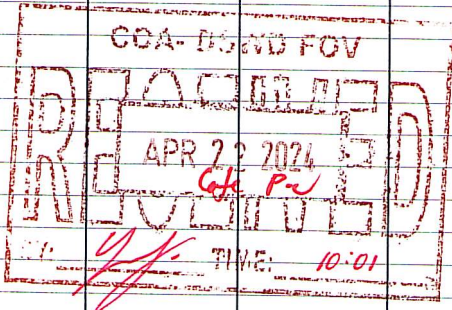 COA- DSWD FOV
RECEIVED
APR 22 2024
BY: TIME: 10:01